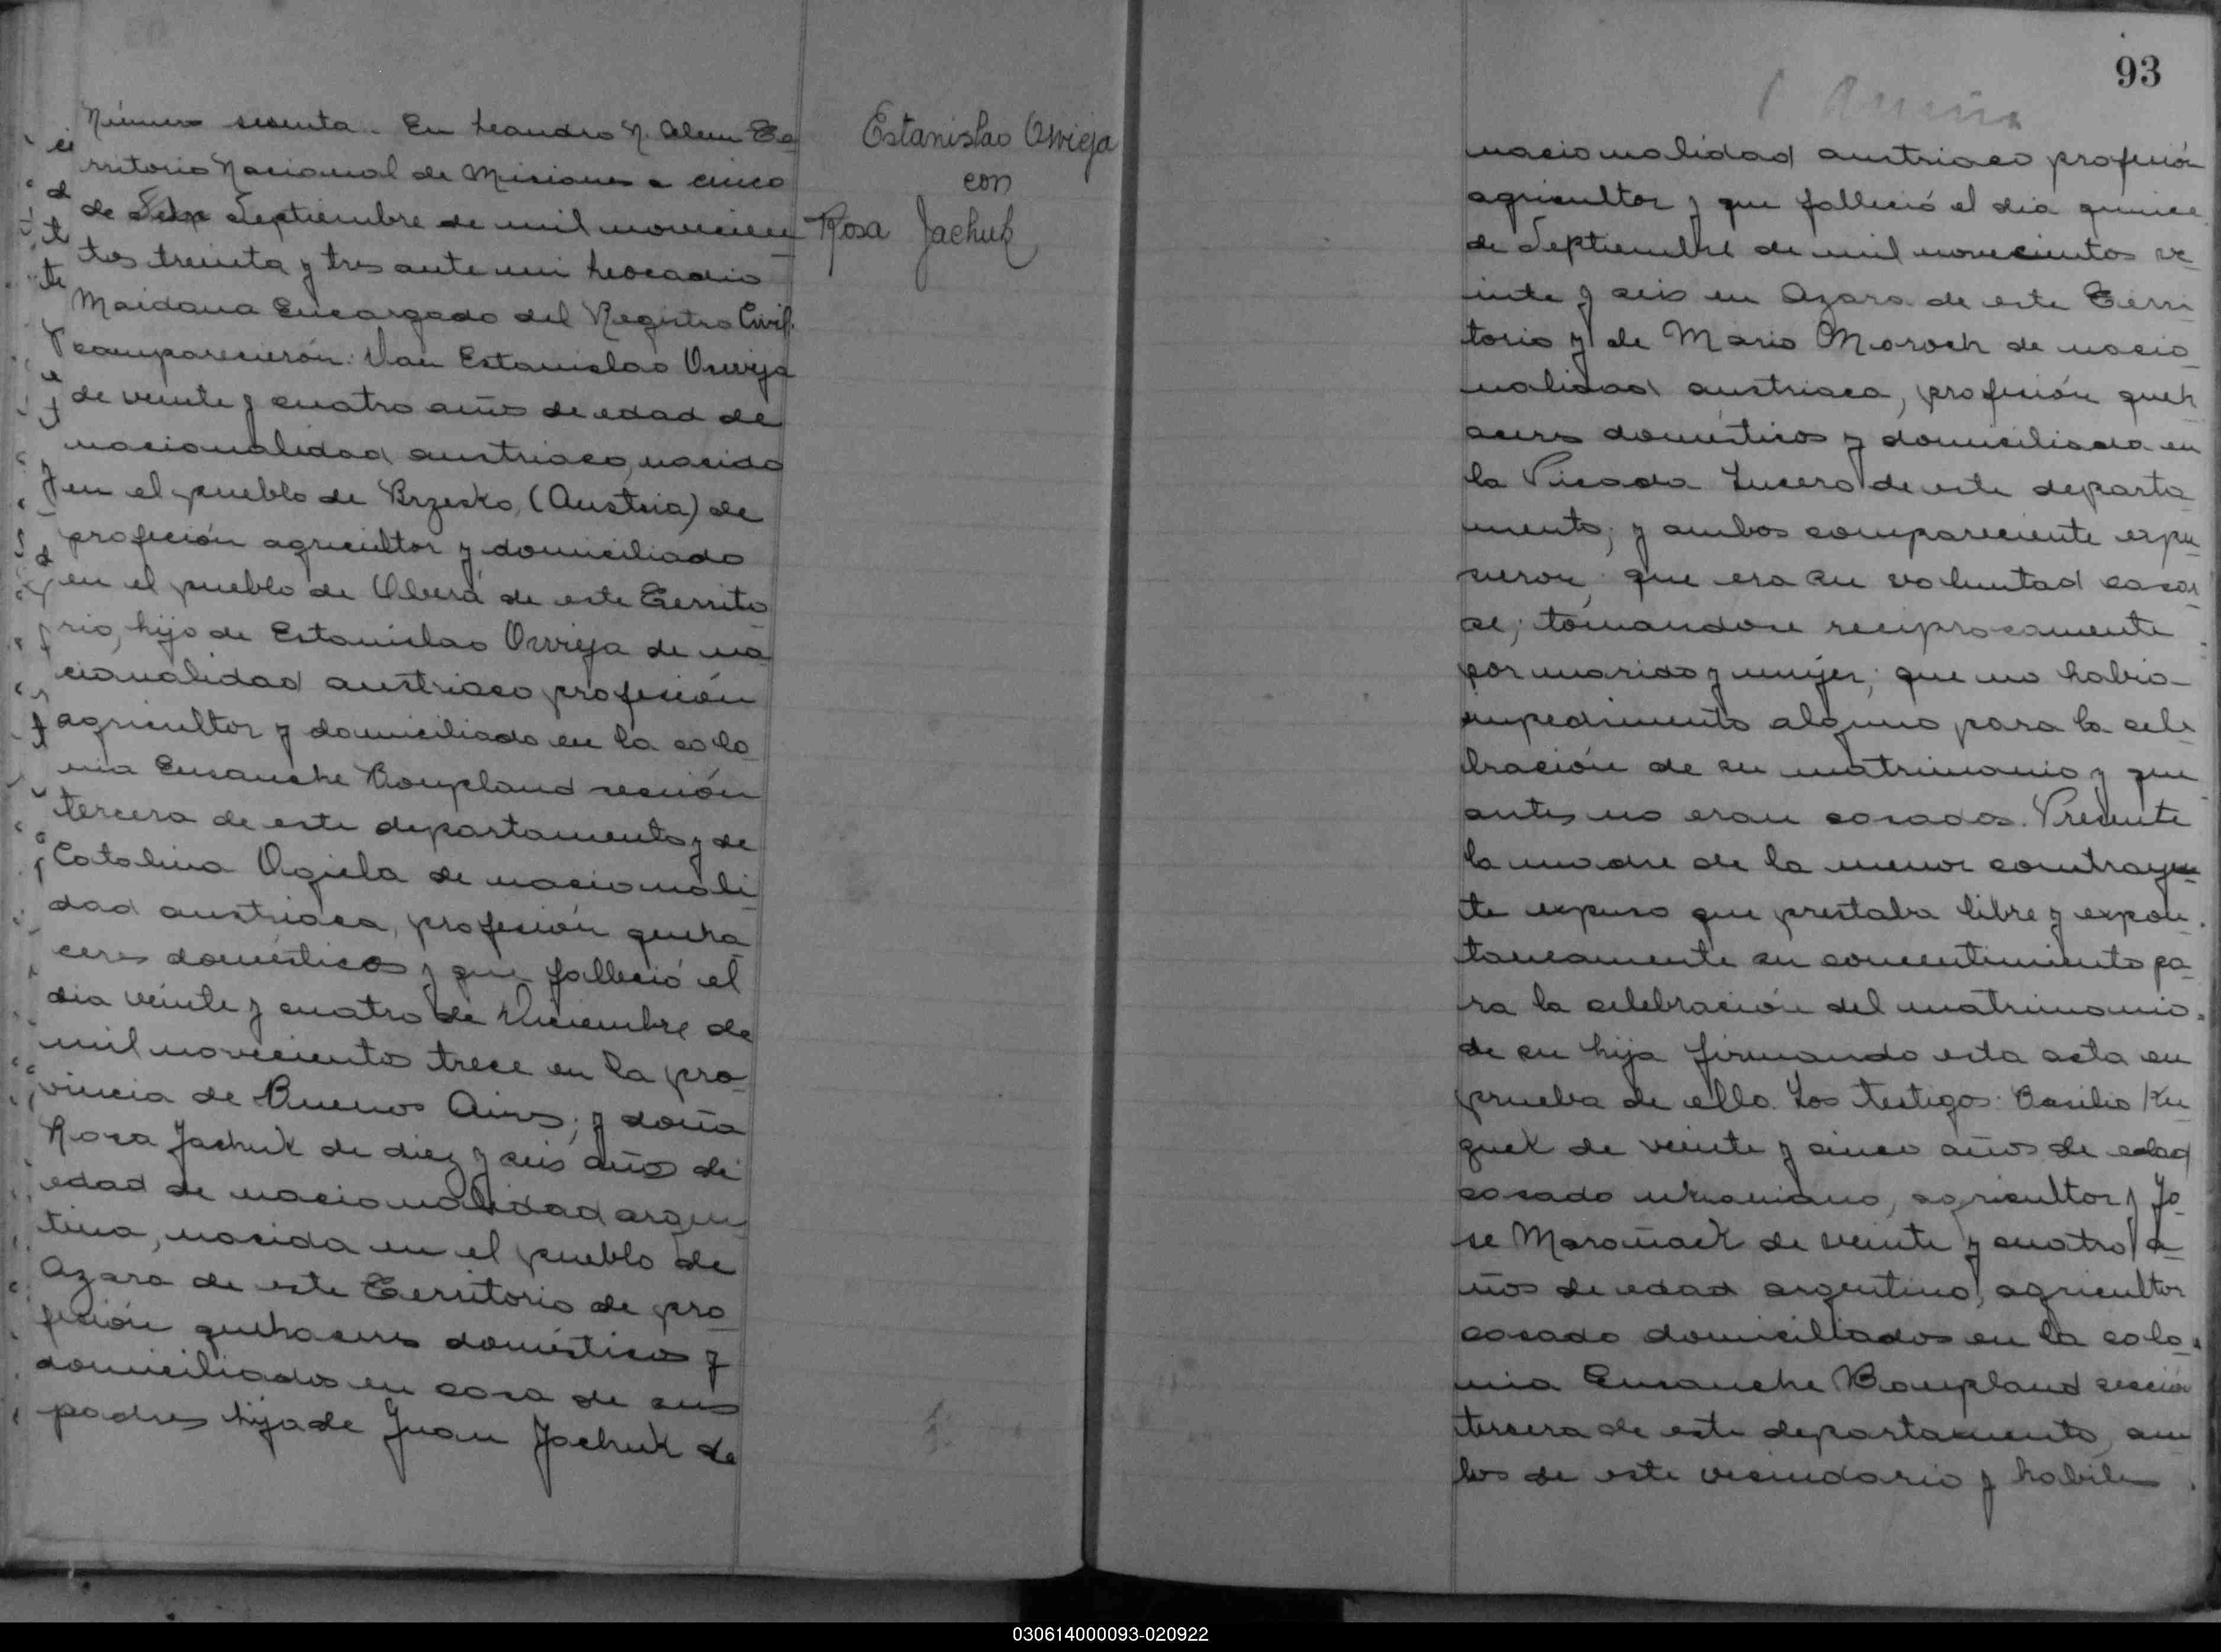 Número sesenta. En Leandro N. Alem Te-
rritorio Nacional de Misiones a cinco
de Septiembre de mil novecien-
tos treinta y tres ante mi Leocadio
Maidana Encargado del Registro Civil.
comparecierón: Don Estanislao Osvieja
de veinte y cuatro años de edad de
nacionalidad austriaco, nacido
en el pueblo de Brzesko, (Austria) de
profeción agricultor y domiciliado
en el pueblo de Oberá de este Territo-
rio, hijo de Estanislao Osvieja de na-
cionalidad austriaco profesión
agricultor y domiciliado en la colo-
nia Ensanche Bonpland sección
tercera de este departamento y de
Catalina Ogiela de nacionali-
dad austriaca, profesión queha-
ceres domésticos y que falleció el
dia veinte y cuatro de Diciembre de
mil novecientos trece en la pro-
vincia de Buenos Aires; y doña
Rosa Jachuk de diez y seis años de
edad de nacionalidad argen-
tina, nacida en el pueblo de
Azara de este Territorio de pro-
fesión quehaceres domésticos y
domiciliados en casa de sus
padres hija de Juan Jachuk de
Estanislao Osvieja
con
Rosa Jachuk
93
nacionalidad austriaco profesión
agricultor y que falleció el dia quince
de Septiembre de mil novecientos ve-
inte y seis en Azara de este Terri-
torio y de Maria Moroch de nacio-
nalidad austriaca, profesión queh-
aceres domésticos y domiciliada en
la Picada Lucero de este departa-
mento; y ambos compareciente expu-
sieron, que era su voluntad casar-
se; tómandose reciprocamente
por marido y mujer; que no habia
impedimento alguno para la cele-
bración de su matrimonio y que
antes no eran casados. Presente
la madre de la menor contrayen-
te expuso que prestaba libre y expon-
taneamente su concentimiento pa-
ra la celebración del matrimonio
de su hija firmando esta acta en
prueba de ello. Los testigos: Basilio Ku-
quek de veinte y cinco años de edad
casado ukraniano, agricultor y Jo-
se Maroñack de veinte y cuatro a-
ños de edad argentino, agricultor
casado domiciliados en la colo-
nia Ensanche Bonpland sección
tercera de este departamento, am-
bos de este vecindario y habiles
030614000093-020922